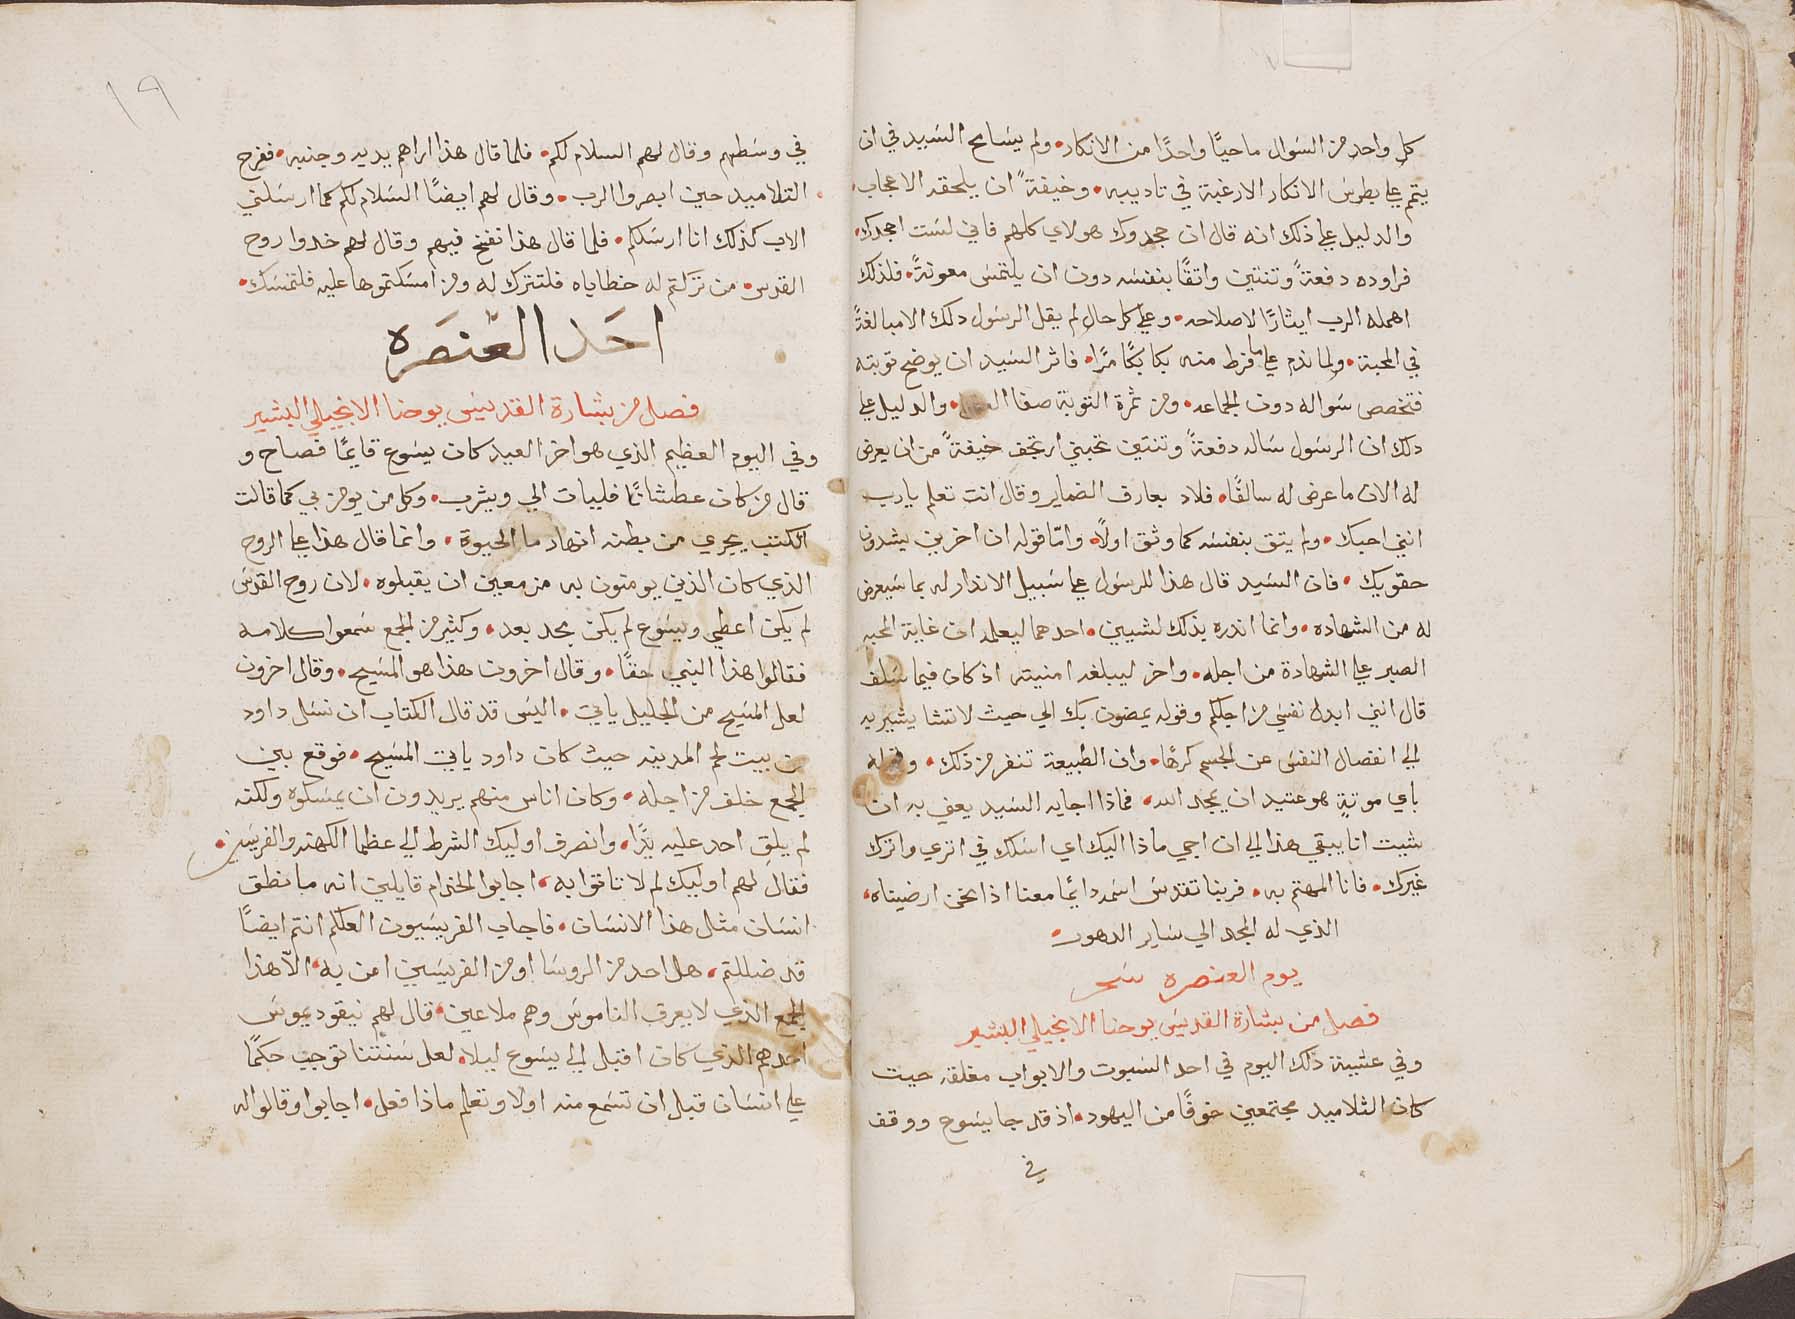 كل واحد من السوال ماحيًا واحدًا من الانكار• ولم يسامح السيد في ان
يتم علي بطرس الانكار الا رغبة في تاديبه• وخيفةً ان يلحقه الاعجاب•
والدليل علي ذلك انه قال ان جحدوك هولاي كلهم فاني لست اجحدك•
فراوده دفعةً وتنتين واتقًا بنفسه دون ان يلتمس معونةً• فلذلك
اهمله الرب ايثارًا لاصلاحه• وعلي كل حال لم يقل الرسول دلك الا مبالغةً
في المحبة• ولما ندم علي ما فرط منه بكا بكًا مرًا• فاثر السيد ان يوضح توبته
فتخصص سواله دون الجماعه• ومن ثمرة التوبة صفا• والدليل علي
دلك ان الرسول ساله دفعةً وتنتين تحبني ارتجف خيفةً من ان يعرض
له الان ما عرض له سالفًا• فلاد بعارف الضماير وقال انت تعلم يارب
انني احبك• ولم يتق بنفسه كما وثق اولًا• وامّا قوله ان اخرين يشدون
حقويك• فان السيد قال هذا للرسول علي سبيل الاندار له بما سيعرض
له من الشهاده• وانما اندره بذلك لشيين• احدهما ليعلمه ان غاية المحبه
الصبر علي الشهادة من اجله• واخر ليبلغه امنيته اذ كان فيما سلف
قال انني ابدل نفسي من اجلكم وقوله يمضون بك الي حيث لا تشا يشير به
الي انفصال النفس عن الجسم كرهًا• وان الطبيعة تنفر من ذلك• وقوله
باي موتةٍ هو عتيد ان يمجد الله• فماذا اجابه السيد يعني به ان
شيت انا يبقي هذا الي ان اجي ماذا اليك اي اسلك في اتري واترك
غيرك• فانا المهتم به• فربنا تقدس اسمه دايمًا معنا اذا نحن ارضيناه•
الذي له المجد الي ساير الدهور•
يوم العنصره سحر
فصل من بشارة القديس يوحنا الانجيلي البشير
وفي عشية ذلك اليوم في احد السبوت والابواب مغلقه حيت
كان التلاميد مجتمعين خوفًا من اليهود• اذ قد جا يسوع ووقف
في
١٩
في وسطهم وقال لهم السلام لكم• فلما قال هذا اراهم يديه وجنبه• ففرح
التلاميد حين ابصروا الرب• وقال لهم ايضًا السلام لكم كما ارسلني
الاب كذلك انا ارسلكم• فلما قال هذا نفخ فيهم وقال لهم خدوا روح
القدس• من تركتم له خطاياه فلتترك له ومن امسكتموها عليه فلتمسك•
احد العنصره
فصل من بشارة القديس يوحنا الانجيلي البشير
وفي اليوم العظيم الذي هو اخر العيد كان يسوع قايمًا فصاح و
قال من كان عطشانًا فليات الي ويشرب• وكل من يومن بي كما قالت
الكتب يجري من بطنه انهار ما الحيوة• وانما قال هذا علي الروح
الذي كان الذين يومنون به مزمعين ان يقبلوه• لان روح القدس
لم يكن اعطي ويسوع لم يكن مجد بعد• وكثير من الجمع سمعوا كلامه
فقالوا هذا النبي حقًا• وقال اخرون هذا هو المسيح• وقال اخرون
لعل المسيح من الجليل ياتي• اليس قد قال الكتاب ان نسل داود
من بيت لحم المدينه حيث كان داود ياتي المسيح• فوقع بين
الجمع خلف من اجله• وكان اناس منهم يريدون ان يمسكوه ولكنه
لم يلق احد عليه يدًا• وانصرف اوليك الشرط الي عظما الكهنه والفريسين•
فقال لهم اوليك لم لا تاتوا به• اجابوا الخدام قايلين انه ما نطق
انسان مثل هذا الانسان• فاجاب الفريسيون العلكم انتم ايضًا
قد ضللتم• هل احد من الروسا او من الفريسين امن به• الّا هذا
الجمع الذي لا يعرف الناموس وهم ملاعين• قال لهم نيقوديموس
احدهم الذي كان اقبل الي يسوع ليلا• لعل سنتنا توجب حكمًا
علي انسان قبل ان تسمع منه اولا وتعلم ماذا فعل• اجابوا وقالوا له